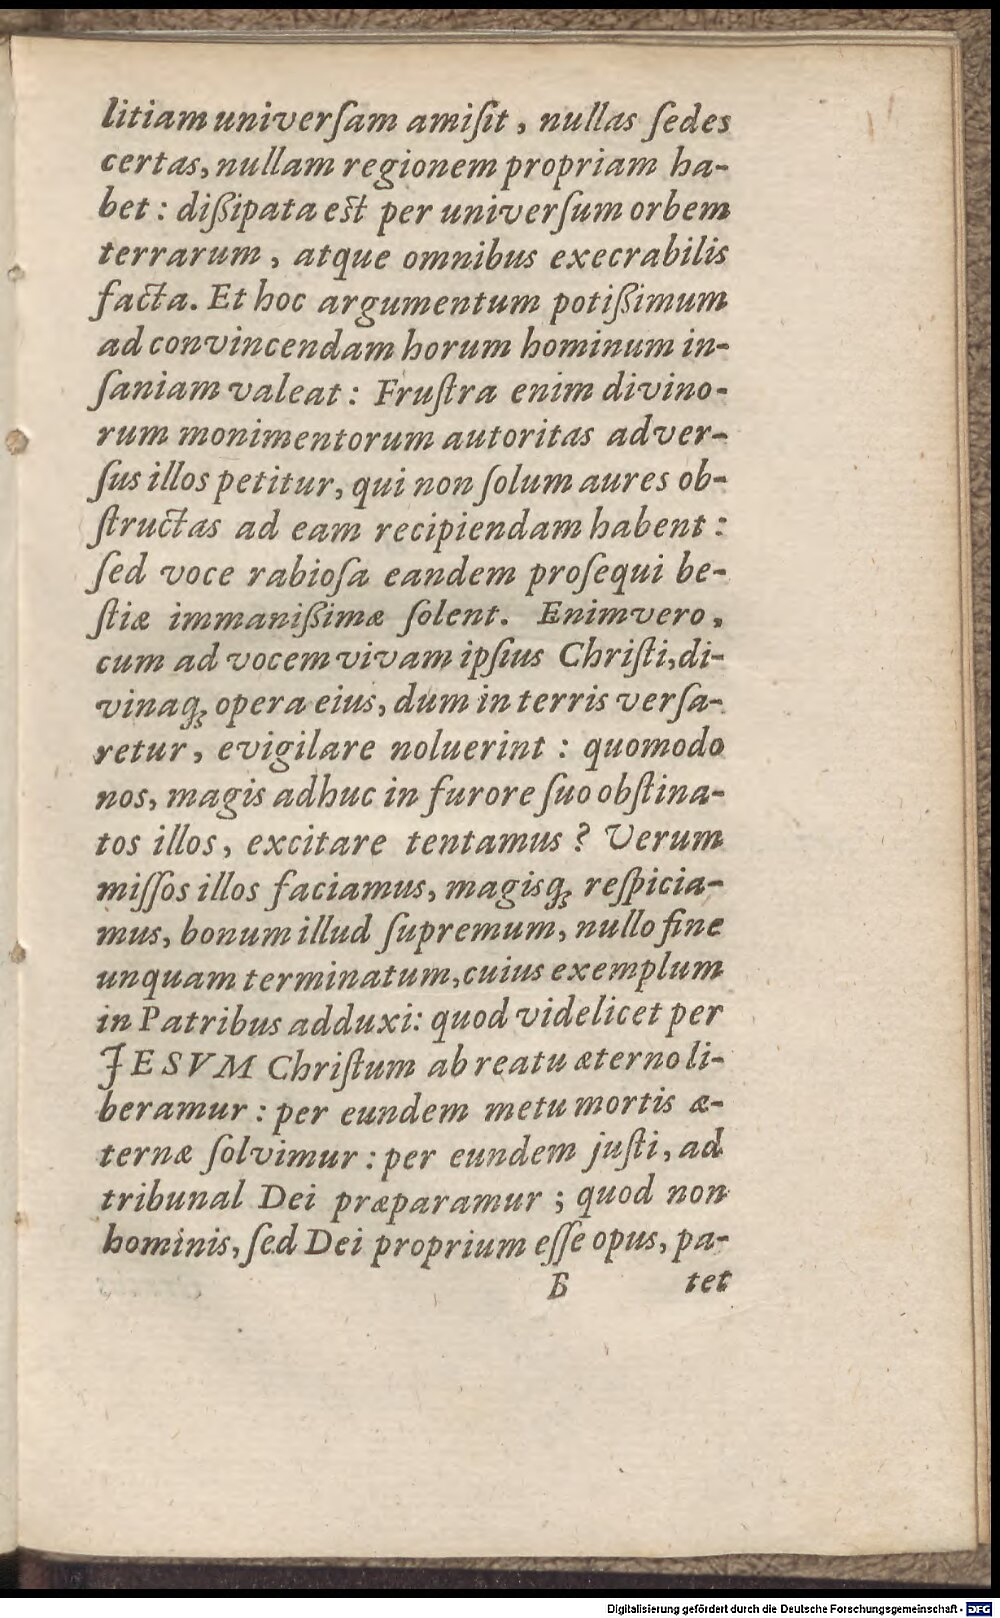 litiam univerſam amiſit, nullas ſedes
certas, nullam regionem propriam ha-
bet: dißipata est per univerſum orbem
terrarum, atque omnibus execrabilis
facta. Et hoc argumentum potißimum
ad convincendam horum hominum in-
ſaniam valeat: Fruſtra enim divino-
rum monimentorum autoritas adver-
ſus illos petitur, qui non ſolum aures ob-
ſtructas ad eam recipiendam habent:
ſed voce rabioſa eandem proſequi be-
ſtiæ immanißimæ ſolent. Enimvero,
cum ad vocem vivam ipſius Chriſti, di-
vinaq́; opera eius, dum in terris verſa-
retur, evigilare noluerint: quomodo
nos, magis adhuc in furore ſuo obſtina-
tos illos, excitare tentamus? Verum
miſſos illos faciamus, magisq́; reſpicia-
mus, bonum illud ſupremum, nullo fine
unquam terminatum, cuius exemplum
in Patribus adduxi: quod videlicet per
JESVM Chriſtum ab reatu æterno li-
beramur: per eundem metu mortis æ-
ternæ ſolvimur: per eundem juſti, ad
tribunal Dei præparamur; quod non
hominis, ſed Dei proprium eſſe opus, pa-
B tet
Digitalisierung gefördert durch die Deutsche Forschungsgemeinschaft - DFG